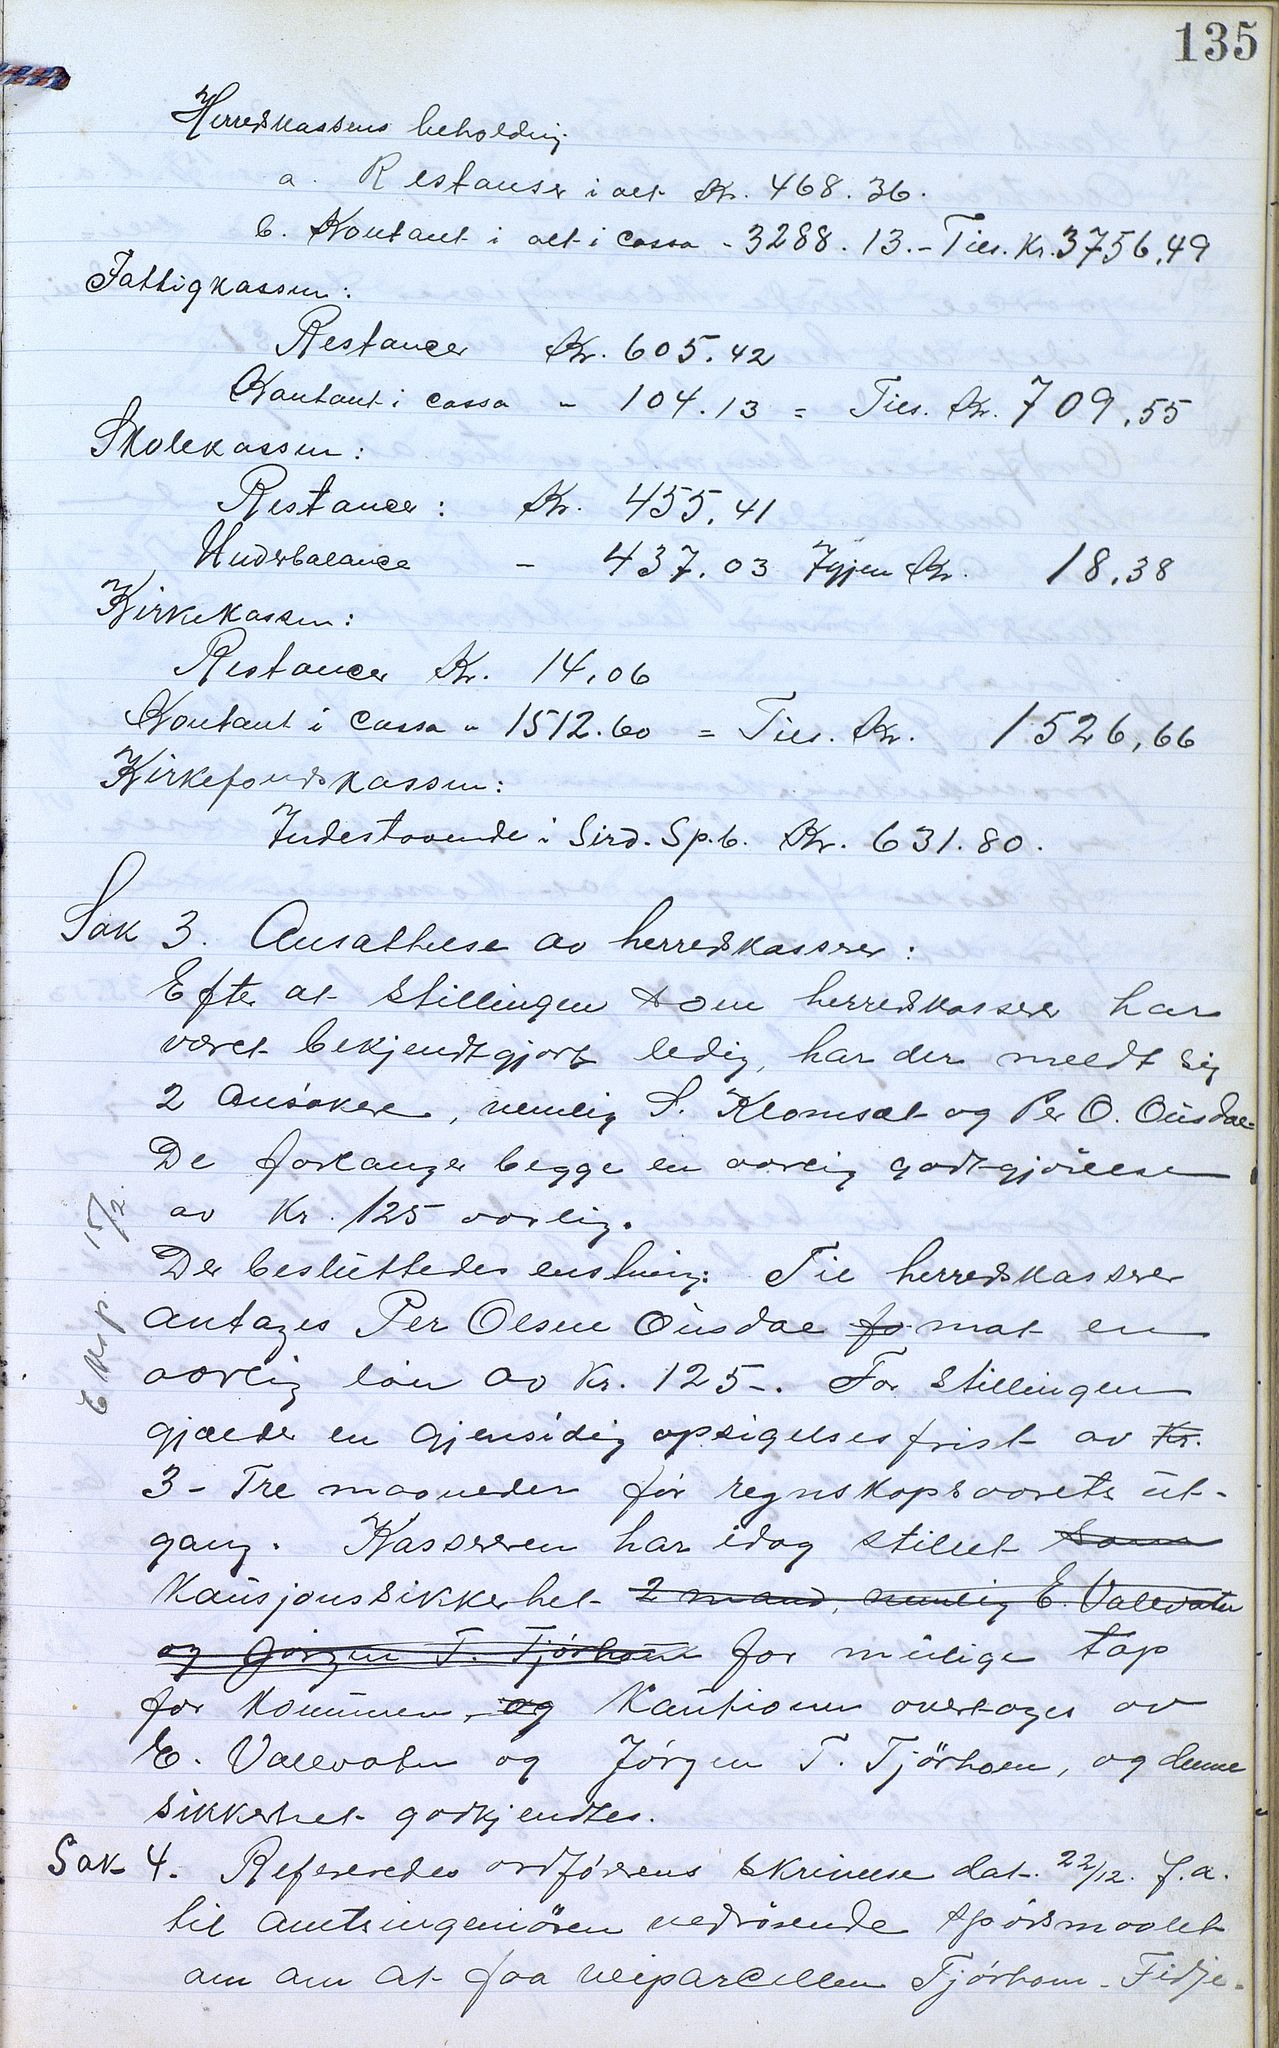 135
Herredskassens beholdning
a. Restanser i alt Kr. 468.36.
b. Kontant i alt i cassa - 3288.13. - Tils. Kr. 3756,49
Fattigkassen:
Restancer Kr. 605.42
Kontant i cassa - 104.13 = Tils. Kr. 709,55
Skolekassen:
Restancer: Kr. 455,41
Underbalance - 437.03 Igjen Kr. 18,38
Kirkekassen:
Restancer Kr. 14,06
Kontant i Cassa - 1512.60 = Tils. Kr. 1526,66
Kirkefondskassen:
Indestaaende i Sird. Sp.b. Kr. 631.80.
Sak 3. Ansættelse av herredskasserer:
Efter at stillingen som herredskasserer har
været bekjendtgjort ledig, har der meldt sig
2 ansøkere, nemlig S. Klomsæt og Per O. Ousdal
De forlanger begge en aarlig godtgjörelse
av Kr. 125 aarlig.
Der besluttedes enstemig: Til herredskasserer
antages Per Olsen Ousdal fo mot en
aarlig løn av Kr. 125-. For stillingen
gjælder en gjensidig opsigelsesfrist av Kr.
3 - Tre maaneder før regnskapsaarets ut-
gang. Kassereren har idag stillet som
Kausjonssikkerhet 2 mand, nemlig E. Valevatn
og Jørgen T. Tjørhom for mulige tap
for kommunen, og Kautionen overtages av
E. Valevatn og Jörgen T. Tjörhom, og denne
sikkerhet godkjendtes.
Eksp. 15/2
Sak 4. Refereredes ordförerens skrivelse dat. 22/12. f.a.
til amtsingeniören vedrörende spörsmaalet
om om at faa veiparcellen Tjørhom - Fidje-